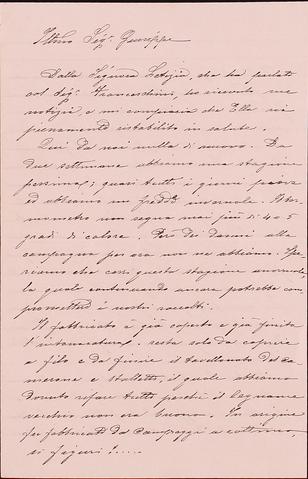 Illmo Sigr. Giuseppe
Dalla Signora Letizia, che ha parlato
col Sigr. Franceschini, ho ricevuto sue
notizie, e mi compiaccio che Ella sia
pienamente ristabilito in salute.
Qui da noi nulla di nuovo. Da
due settimane abbiamo una stagione
pessima; quasi tutti i giorni piove
ed abbiamo un freddo invernale. Il ter-
mometro non segna mai più di 4 o 5
gradi di calore. Però dei danni alla
campagna per ora non ne abbiamo. Spe-
riamo che cessi questa stagione anormale,
la quale continuando ancora potrebbe com-
promettere i nostri raccolti.
Il fabbricato è già coperto e già finita
l'intonacatura; resta solo da coprire
a filo e da finire il tavellonato del ca-
merone e stalletti, il quale abbiamo
dovuto rifare tutto perchè il legname
vecchio non era buono. In origine
fu fabbricato da Campaggi a cottimo,
si figuri!....